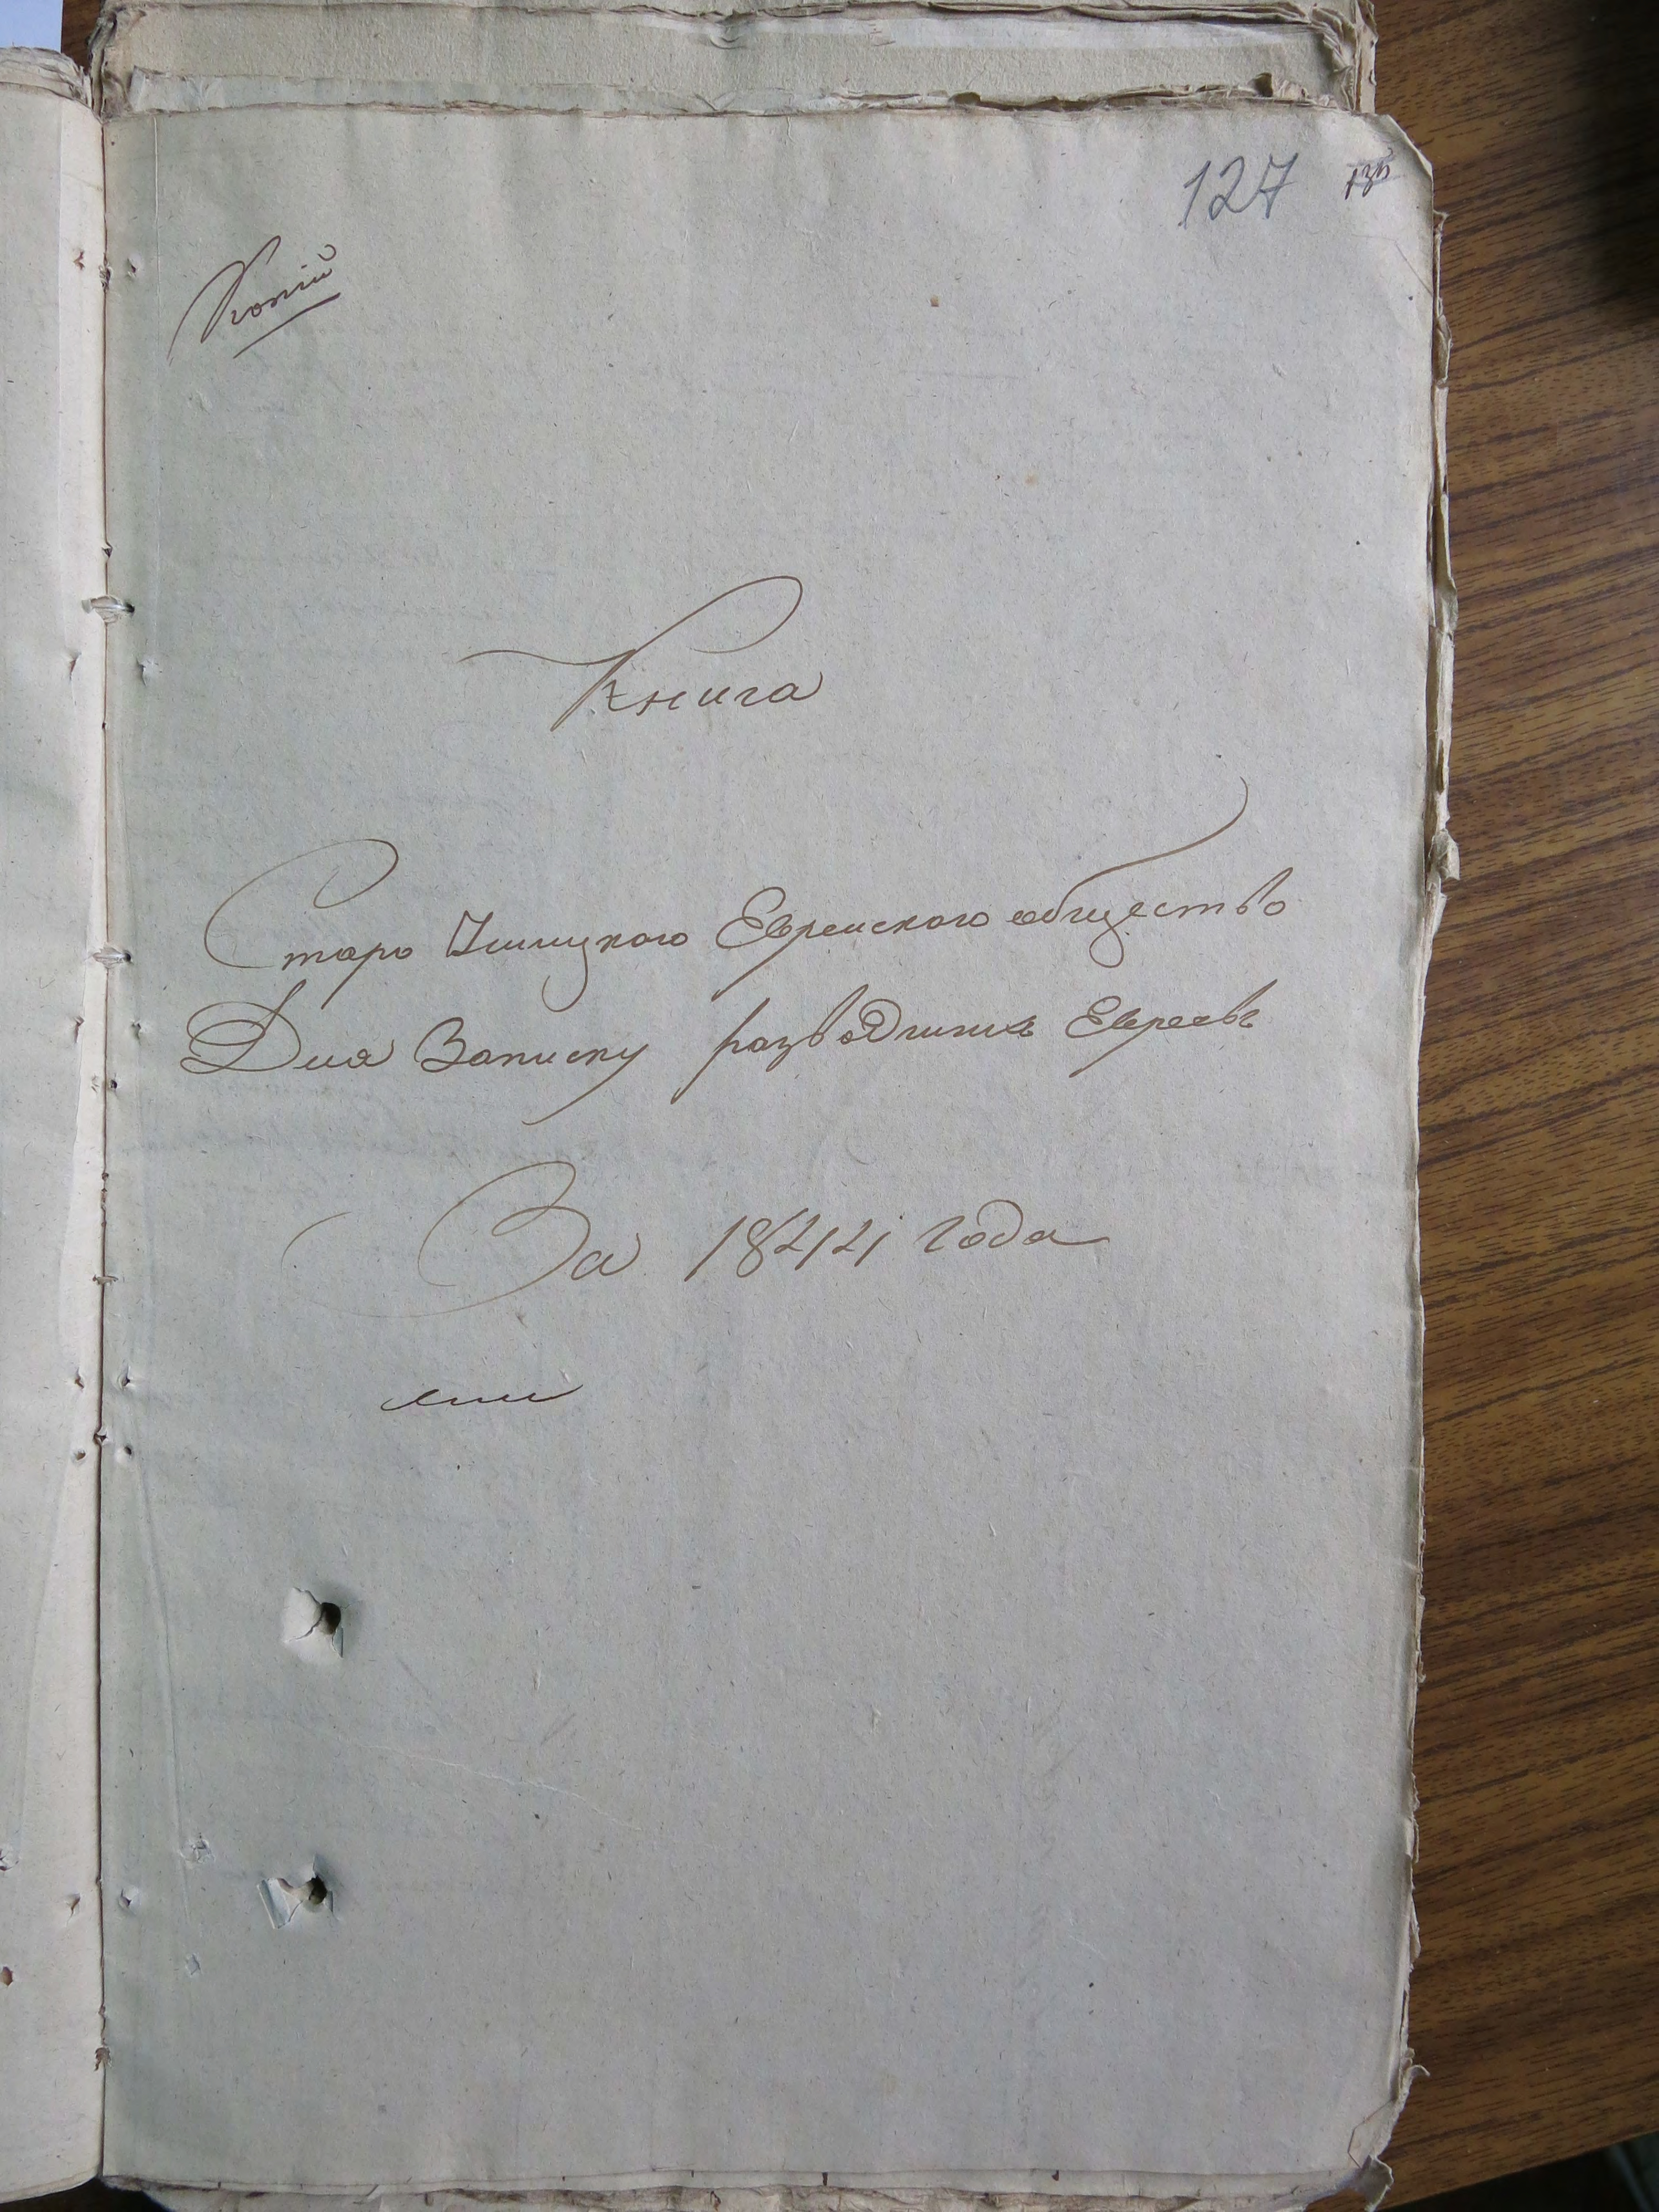 127
Копій
Книга
Старо Ушицкого Евреиского общество
Для Записку разводжих Евреевъ
За 1844 года